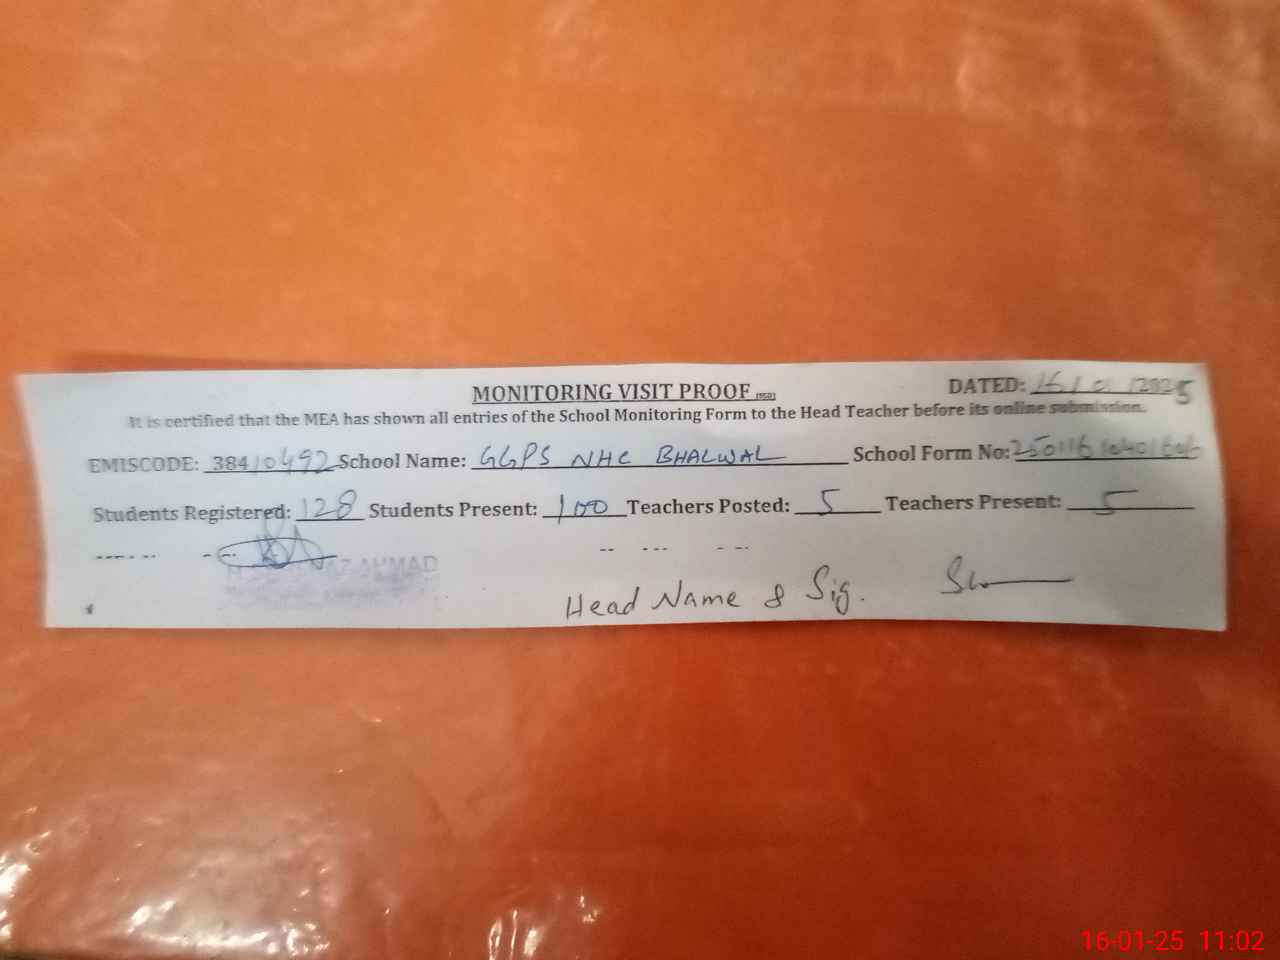 MONITORING VISIT PROOF
DATED: 16/01/2025
It is certified that the MEA has shown all entries of the School Monitoring Form to the Head Teacher before its online submission.
EMISCODE: 38410492 School Name: GGPS NHC BHALWAL School Form No:
Students Registered: 128 Students Present: 100 Teachers Posted: 5 Teachers Present: 5
AHMAD
Head Name & Sig.
16-01-25 11:02